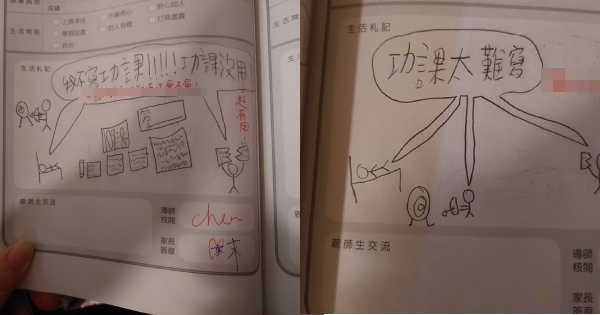 成績
上課專心
作業用心
熱心助人
學習認真
對人有禮
打掃盡責
其他
生活常規
生活札記
我不寫功課!!!!!功課沒用
親師生交流
導師
核閱
chen
家長
簽章
生活札記
功課太難寫
親師生交流
導師
核閱
家長
簽章